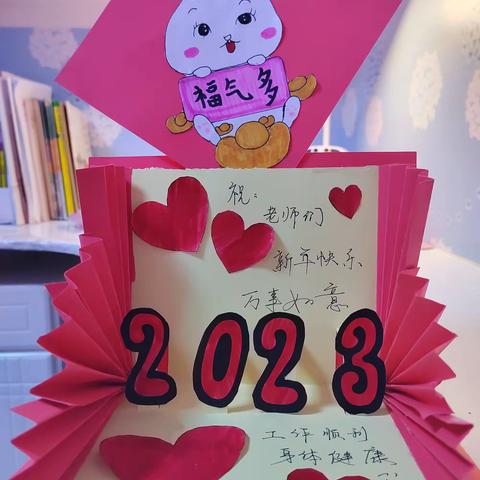 福气多
祝：
老师们
新年快乐
万事如意
2023
工作顺利
身体健康